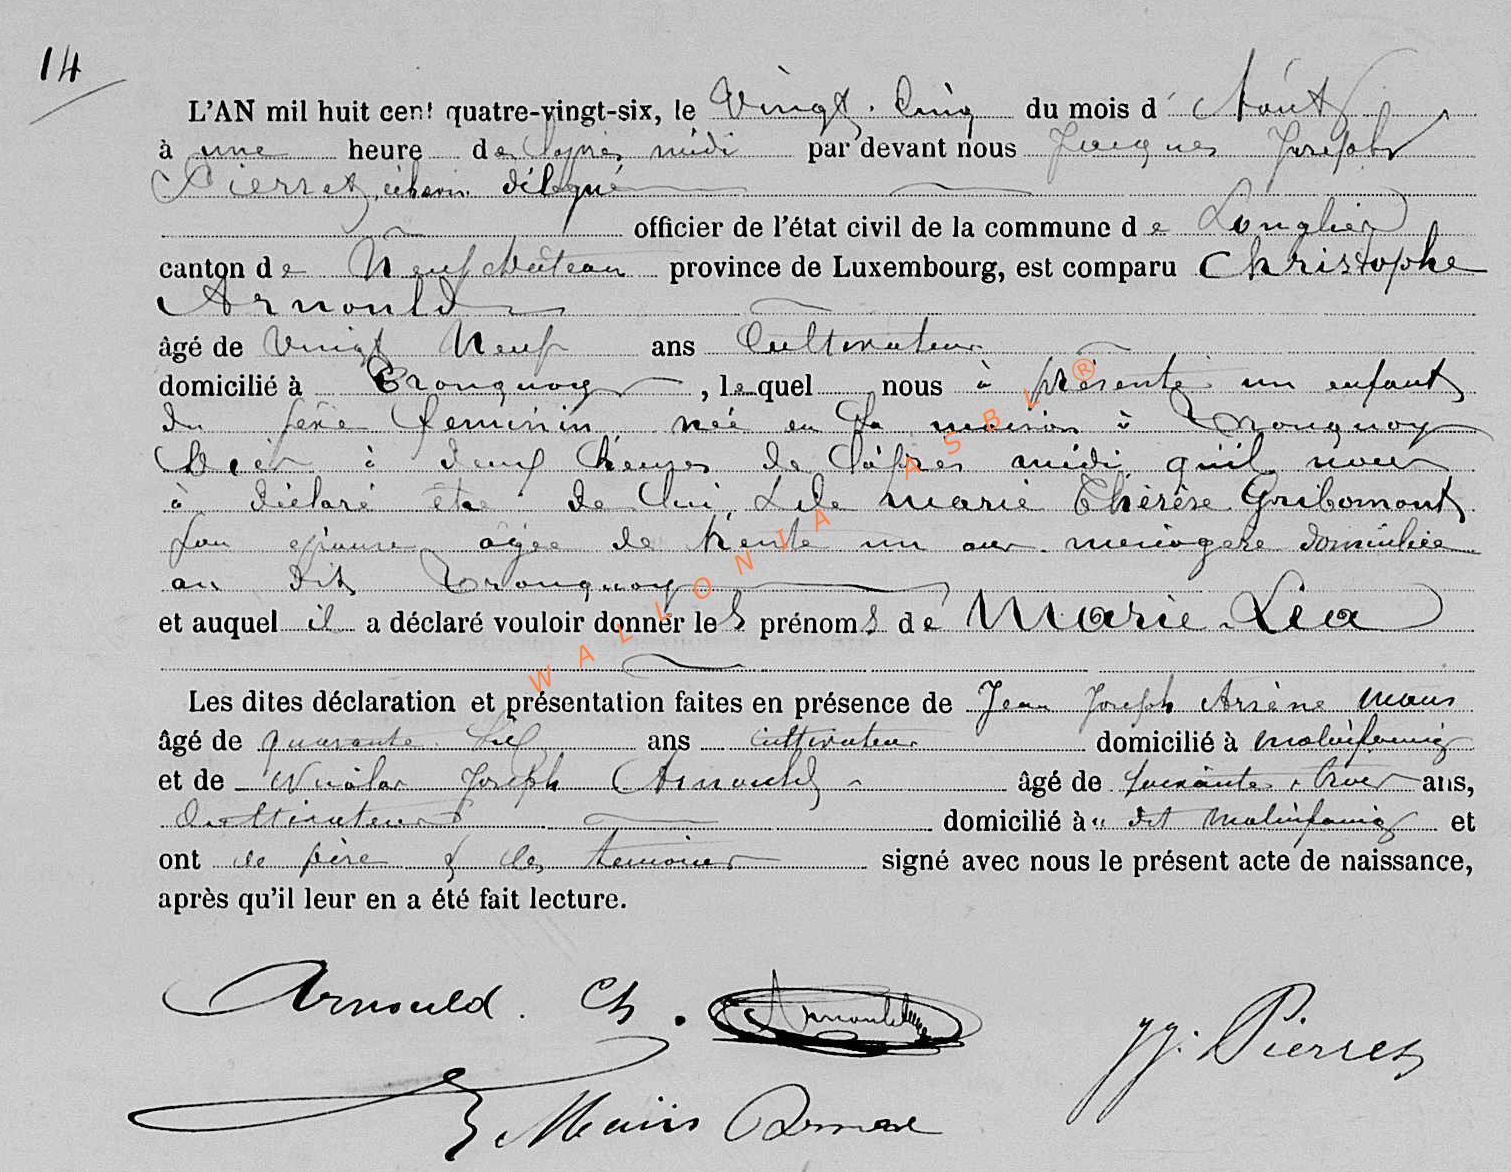 14
L'AN mil huit cent quatre-vingt-six, le Vingt. Cinq du mois d' Août
à une heure de l'après midi par devant nous Jacques Joseph
Pierret, échevin délégué
officier de l'état civil de la commune de Longlier
canton de Neufchâteau province de Luxembourg, est comparu Christophe
Arnould
âgé de Vingt Neuf ans Cultivateur
domicilié à Tronquoy, lequel nous à présenté un enfant
du sexe féminin née en sa maison à Tronquoy
hier à deux heures de l'après midi qu'il nous
à déclaré être de lui, & de Marie Thérèse Gribomont
son épouse agée de trente un ans ménagère domiciliée
au dit Tronquoy
et auquel il a déclaré vouloir donner les prénoms de Marie Léa
Les dites déclaration et présentation faites en présence de Jean Joseph Arsène Maus
âgé de quarante six ans cultivateur domicilié à Molinfaing
et de Nicolas Joseph Arnould âgé de soixante trois ans,
Cultivateur domicilié à dit Molinfaing et
ont le père & les témoins signé avec nous le présent acte de naissance,
après qu'il leur en a été fait lecture.
Arnould. Ch. Arnould
JJ. Pierret
Maus
WALLONIA ASBL ®